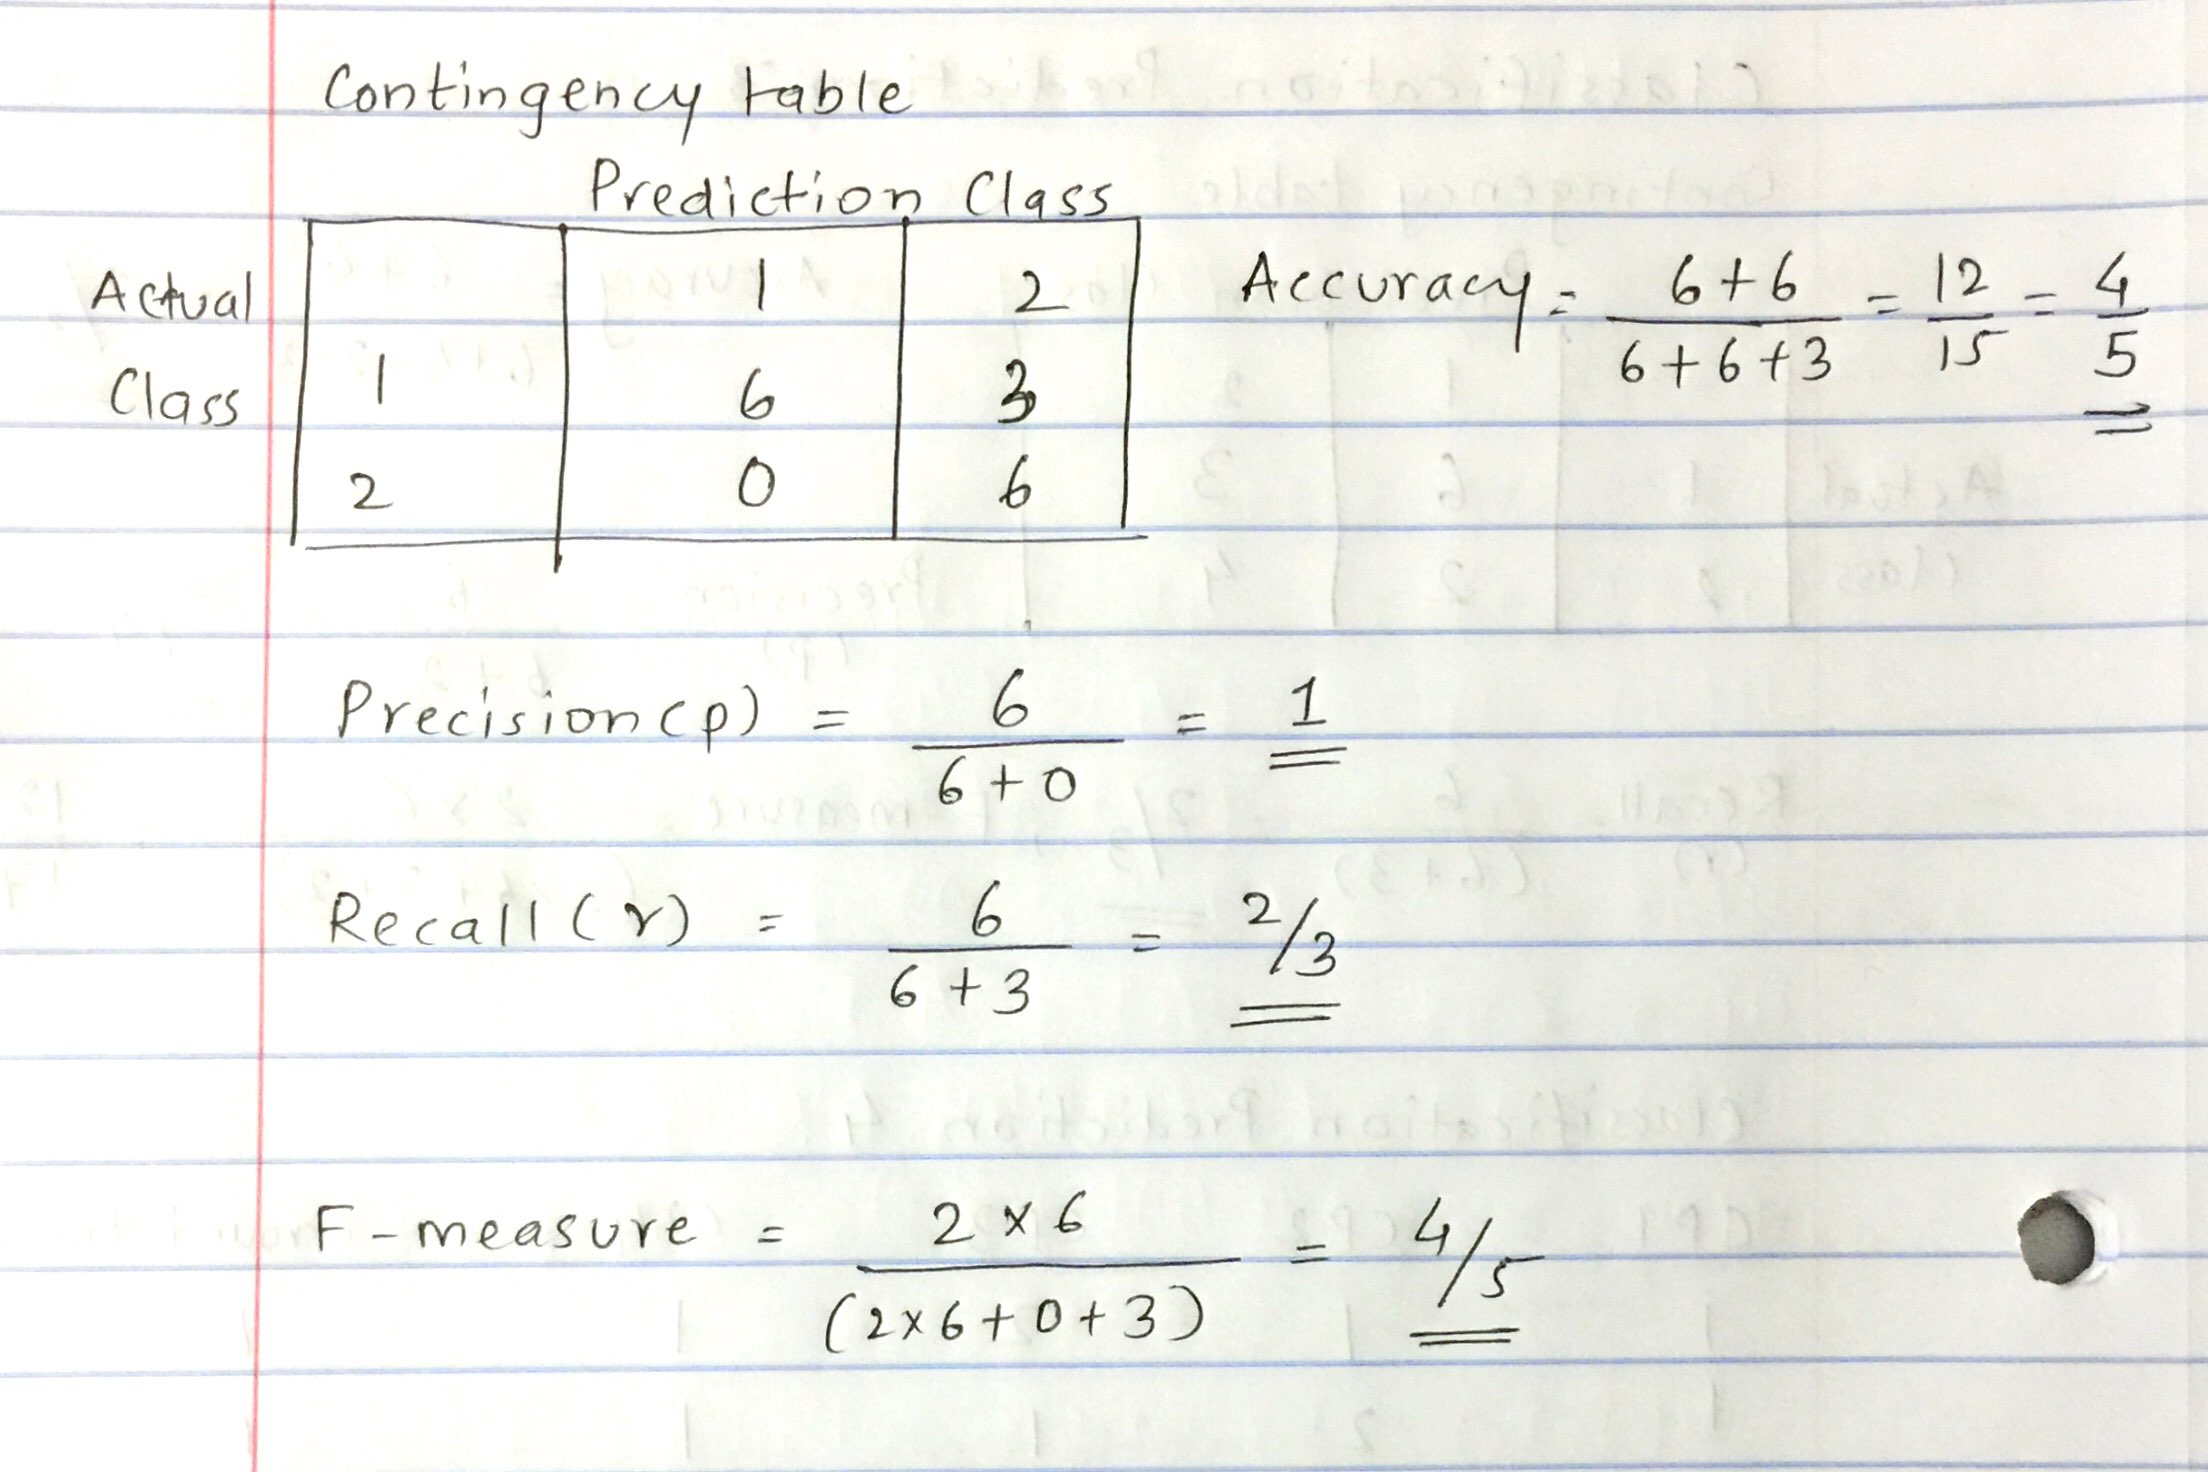 Contingency table
Prediction Class
Actual Class
1 2
1 6 3
2 0 6
Accuracy = 6+6 / 6+6+3 = 12/15 = 4/5
Precision(p) = 6 / 6+0 = 1
Recall(r) = 6 / 6+3 = 2/3
F-measure = 2×6 / (2×6+0+3) = 4/5